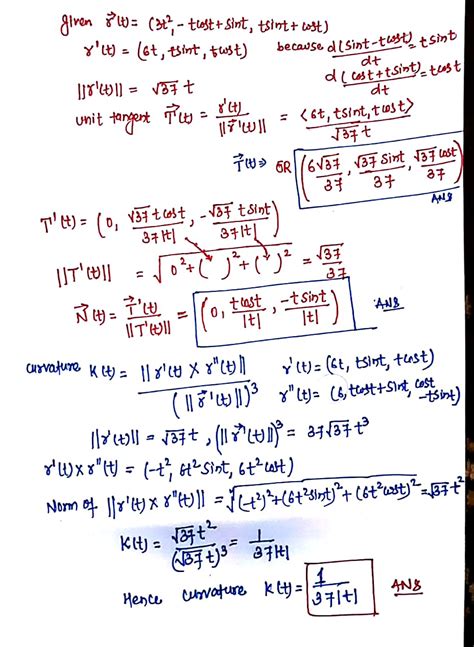 given r⃗(t) = (3t², -tcost + sint, tsint + cost)
r'(t) = (6t, tsint, tcost) because d(sint - tcost)/dt = tsint
d(cost + tsint)/dt = tcost
||r'(t)|| = √37 t
unit tangent T⃗(t) = r'(t)/||r⃗'(t)|| = <6t, tsint, tcost>/√37 t
T(t) ⇒ OR (6√37/37, √37 sint/37, √37 cost/37)
ANS
T'(t) = (0, √37 tcost/37|t|, -√37 tsint/37|t|)
||T'(t)|| = √(0² + ( )² + ( )²) = √37/37
N⃗(t) = T⃗'(t)/||T'(t)|| = (0, tcost/|t|, -tsint/|t|) ANS
curvature K(t) = ||r'(t) × r''(t)||/(||r⃗'(t)||)³ r'(t) = (6t, tsint, tcost)
r''(t) = (6, tcost + sint, cost - tsint)
||r'(t)|| = √37 t, (||r⃗'(t)||)³ = 37√37 t³
r'(t) × r''(t) = (-t², 6t² sint, 6t² cost)
Norm of ||r'(t) × r''(t)|| = √((-t²)² + (6t² sint)² + (6t² cost)²) = √37 t²
K(t) = √37 t²/(√37 t)³ = 1/37|t|
Hence curvature K(t) = 1/37|t| ANS